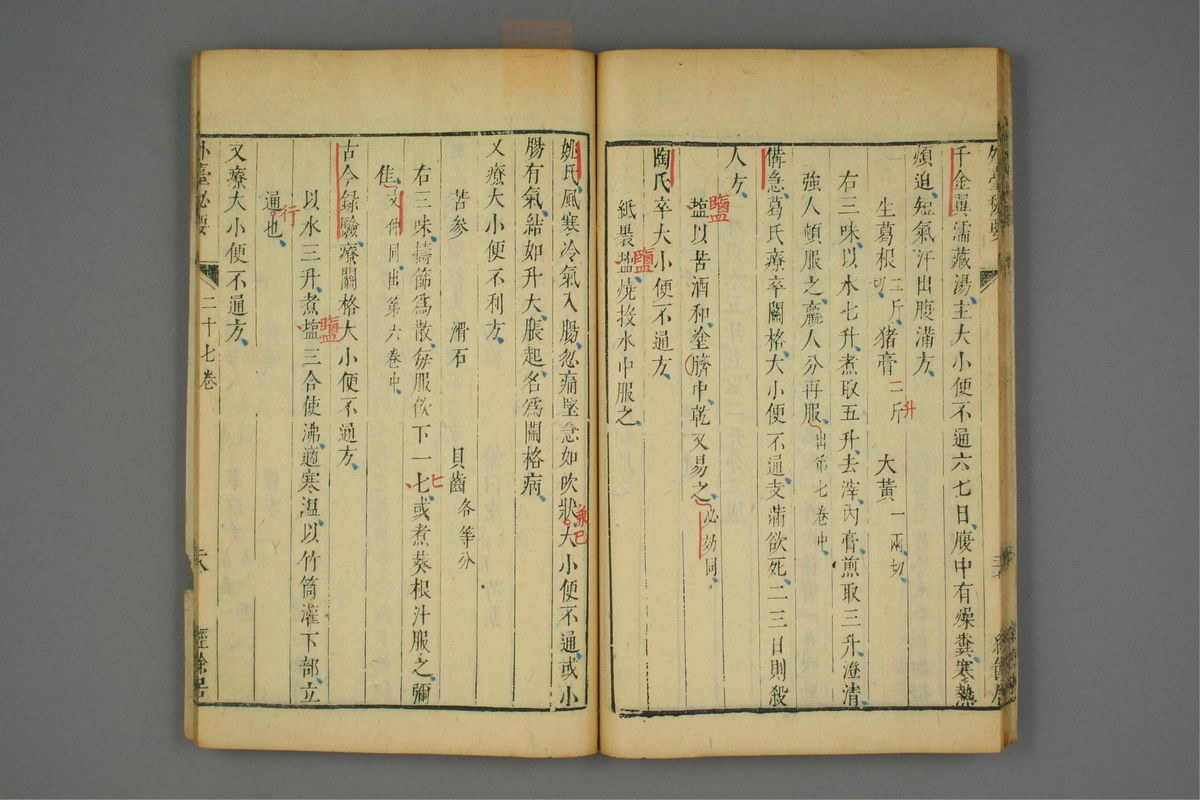 千金冀濡藏湯、主大小便不通六七日、腹中有燥糞、寒熱
煩迫、短氣汗出腹滿方、
生葛根二斤切 猪膏二斤 升 大黃一兩切、
右三味、以水七升、煮取五升、去滓、內膏煎取三升、澄清、
強人頓服之、羸人分再服、出第七卷中、
備急葛氏療卒關格、大小便不通、支滿欲死、二三日則殺
人方、
塩以苦酒和、塗臍中、乾又易之、必効同、
鹽
陶氏卒大小便不通方、
紙裹塩燒投水中服之、
鹽
姚氏、風寒冷氣入腸、忽痛堅急如吹狀、大小便不通、或小
腸有氣、結如升大、脹起、名爲關格病、
又療大小便不利方、
苦参 滑石 貝齒各等分
右三味、擣篩爲散、每服飲下一七、或煮葵根汁服之、彌
匕
佳、文仲同、出第六卷中、
古今録驗療關格大小便不通方、
以水三升、煮塩三合使沸、適寒温、以竹筒灌下部、立
鹽
通也、
行
又療大小便不通方、
二十七卷
經餘居